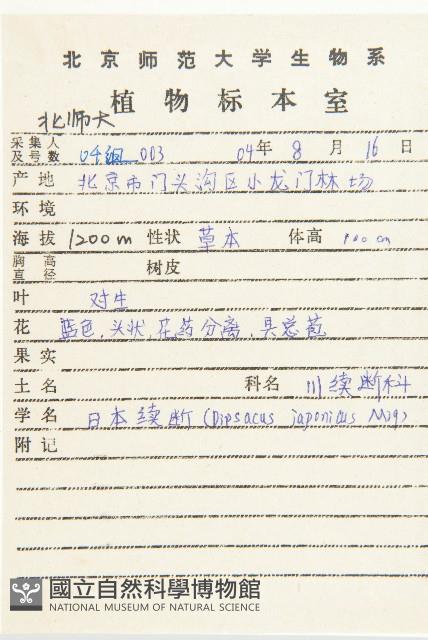 北京师范大学生物系
植物标本室
北师大
采集人及号数 04组 003 04年 8 月 16 日
产地 北京市门头沟区小龙门林场
环境
海拔 1200m 性状 草本 体高 100cm
胸高直径 树皮
叶 对生
花 蓝色,头状,花药分离,具总苞
果实
土名 科名 川续断科
学名 日本续断(Dipsacus japonicus Miq)
附记
國立自然科學博物館
NATIONAL MUSEUM OF NATURAL SCIENCE